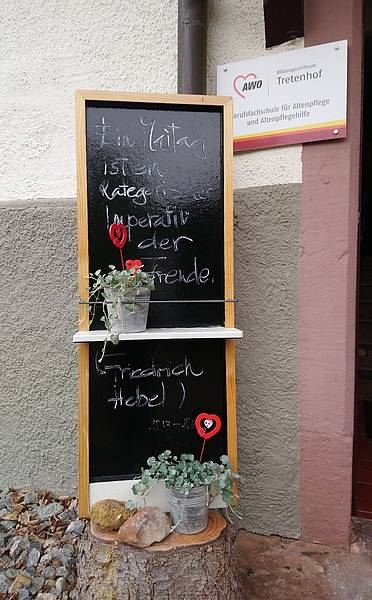 AWO
Bildungszentrum
Tretenhof
Berufsfachschule für Altenpflege
und Altenpflegehilfe
Ein Maitag
ist ein
kategorischer
Imperativ
der
Freude.
(Friedrich
Hebel)